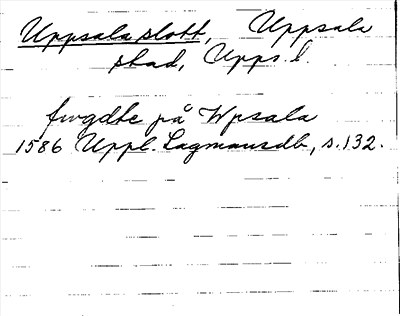 Uppsala slott, Uppsala
stad, Upps. l.
fwgdte på Wpsala
1586 Uppl. Lagmansdb, s. 132.